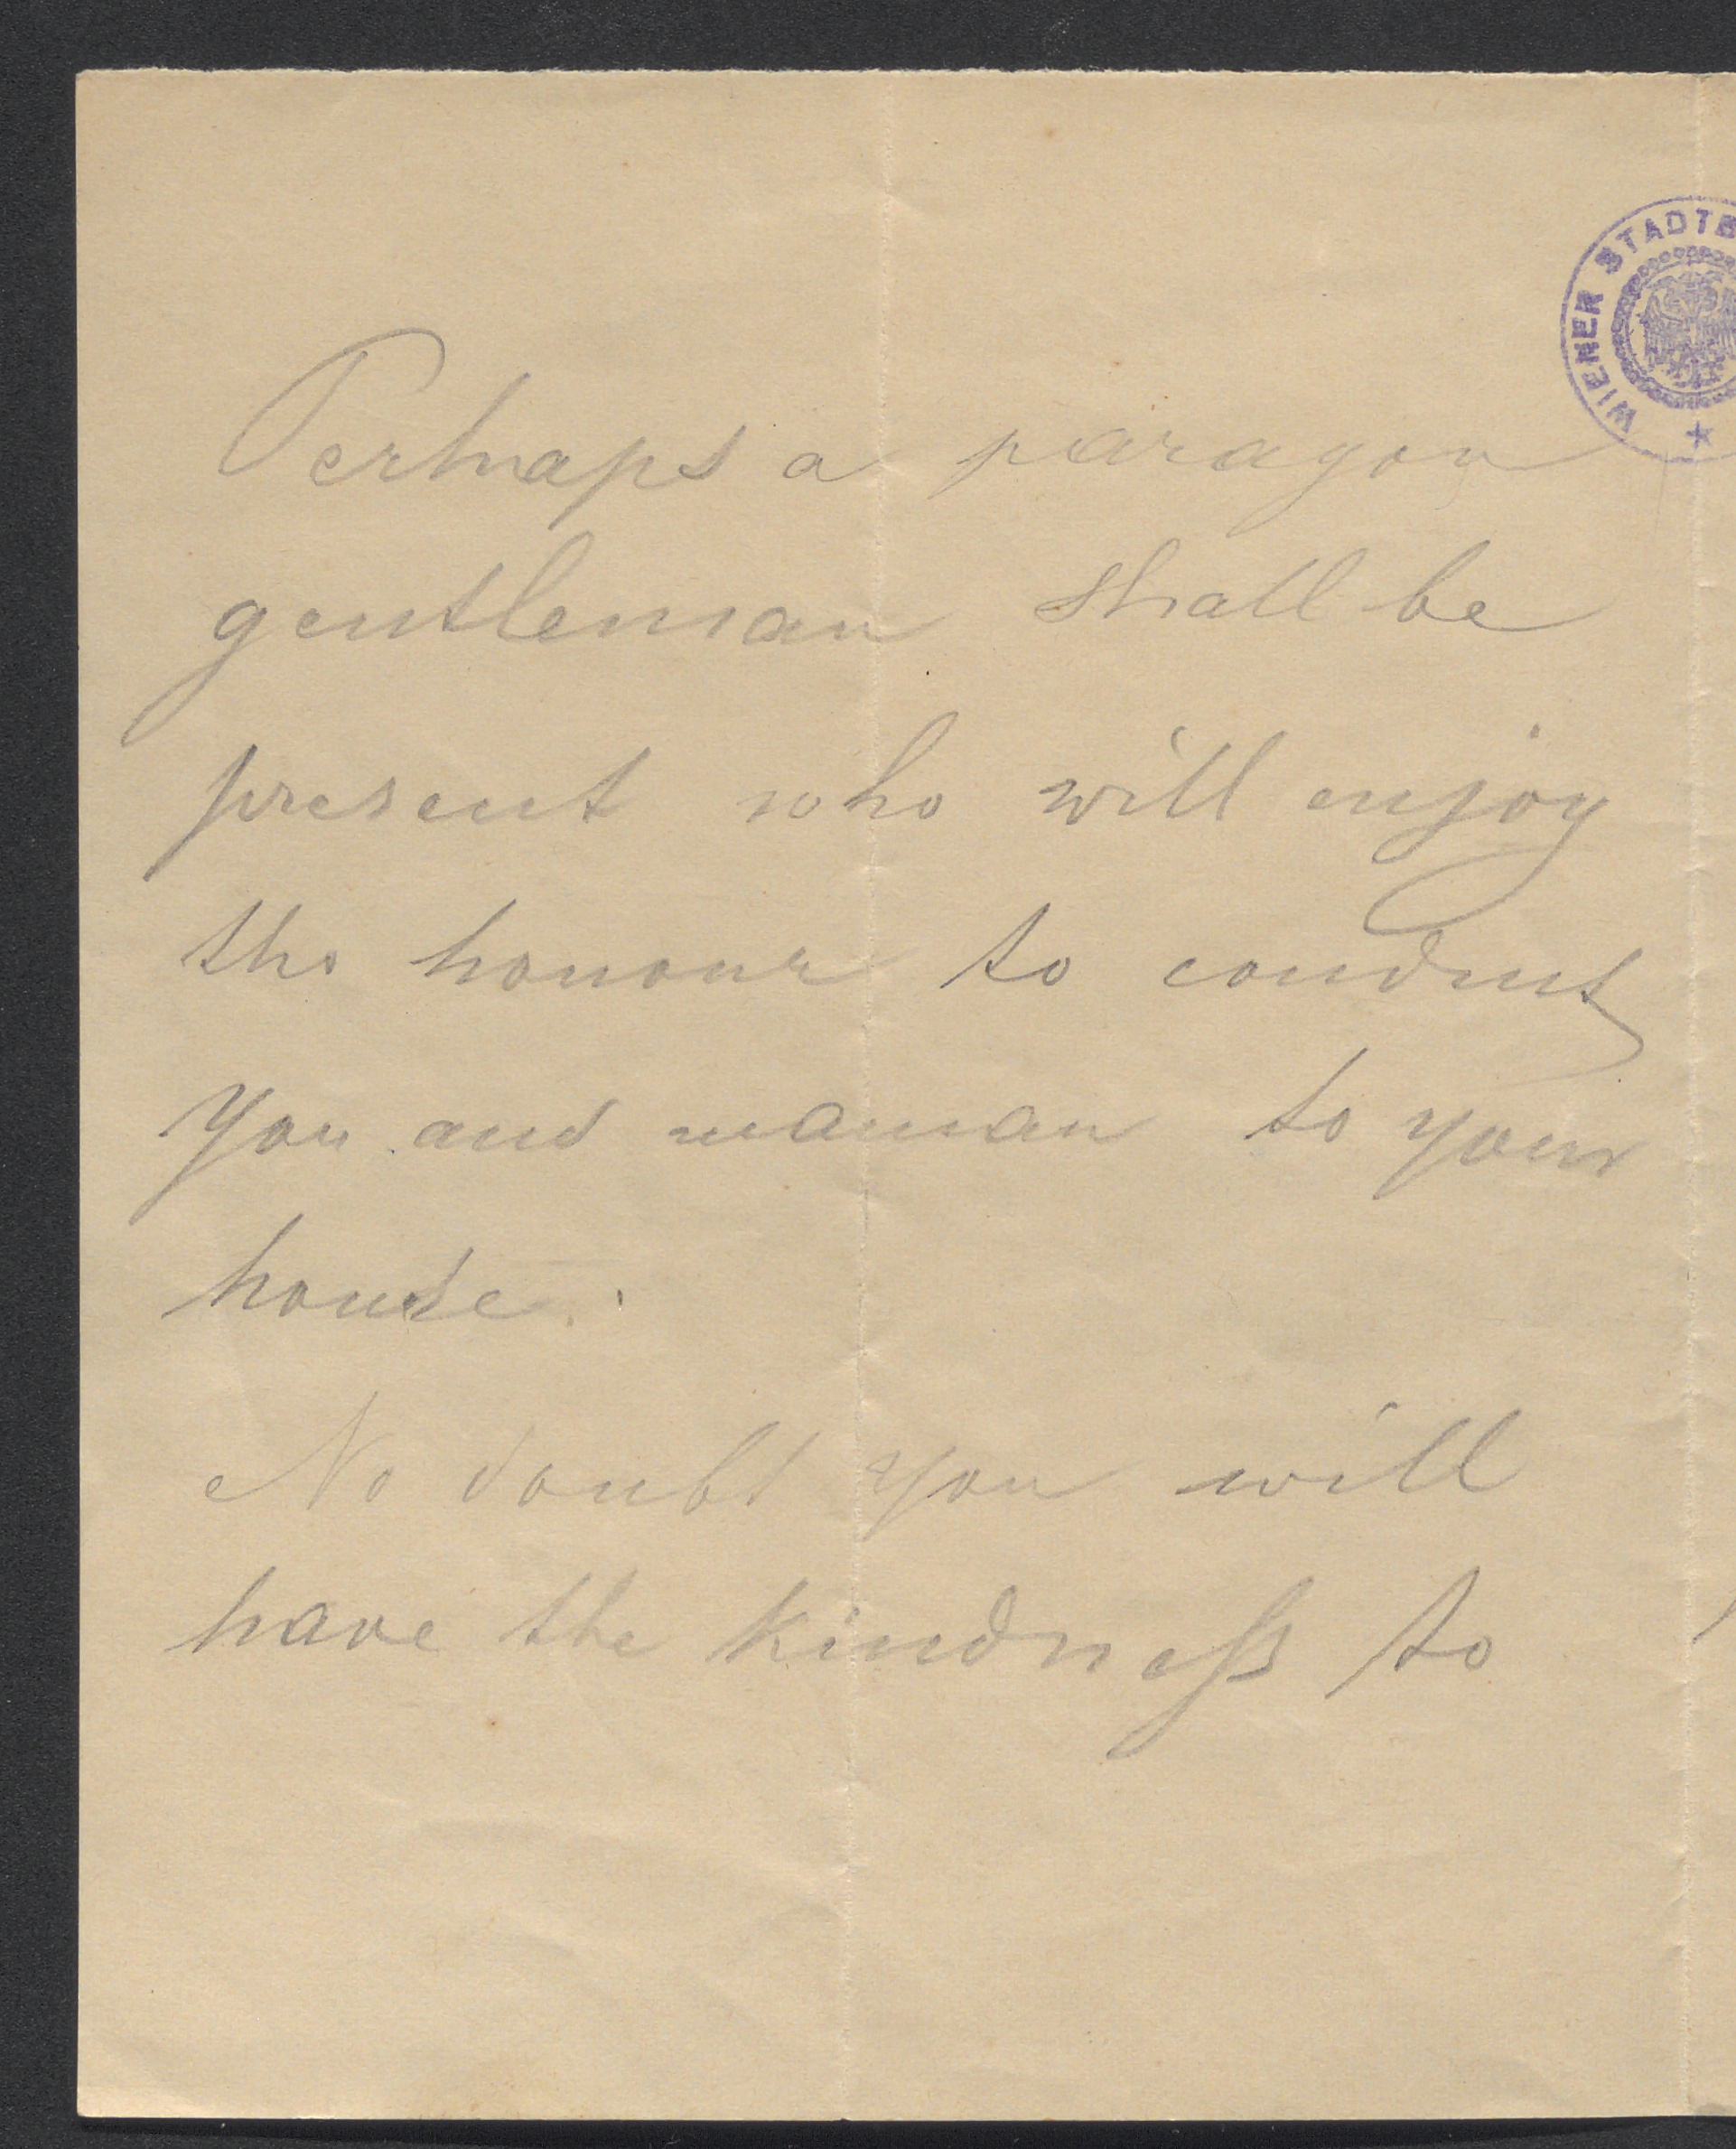 Perhaps a paragon
gentleman shall be
present who will enjoy
the honour to conduct
you and maman to your
house.
No doubt you will
have the kindness to
WIENER STADTB